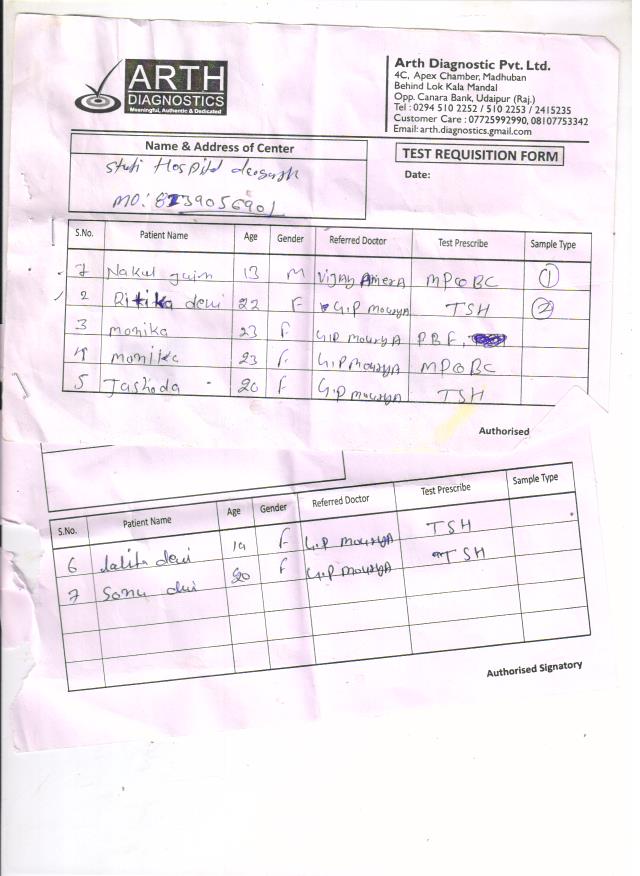 ARTH
DIAGNOSTICS
Meaningful, Authentic & Dedicated
Arth Diagnostic Pvt. Ltd.
4C, Apex Chamber, Madhuban
Behind Lok Kala Mandal
Opp. Canara Bank, Udaipur (Raj.)
Tel : 0294 510 2252 / 510 2253 / 2415235
Customer Care : 07725992990, 08107753342
Email: arth.diagnostics.gmail.com
Name & Address of Center
Hospital deogarh
MO:
TEST REQUISITION FORM
Date:
S.No. Patient Name Age Gender Referred Doctor Test Prescribe Sample Type
1 Nakul 13 M Vijay AmerA MP CBC 1
2 Ritika devi 22 F G.P mouryA TSH 2
3 monika 23 F G.P mouryA PBF,
4 monika 23 F G.P mouryA MP CBC
5 Jashoda 20 F G.P mouryA TSH
Authorised
S.No. Patient Name Age Gender Referred Doctor Test Prescribe Sample Type
6 lalita devi 19 F G.P mouryA TSH
7 Sonu devi 20 F G.P mouryA TSH
Authorised Signatory